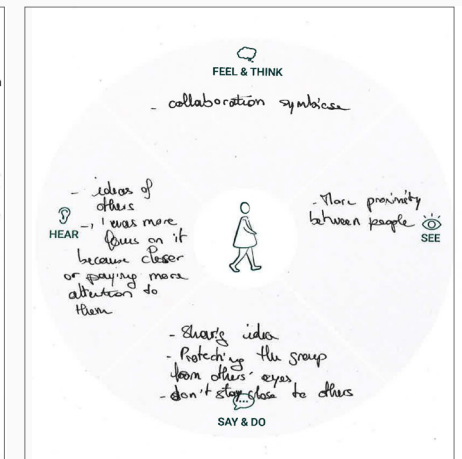 FEEL & THINK
- collaboration symbiose
- ideas of
others
-, I was more
focus on it
because closer
or paying more
attention to
them
HEAR
- More proximity
between people
SEE
- Sharing idea
- Protecting the group
from others' eyes
- don't stay close to others
SAY & DO